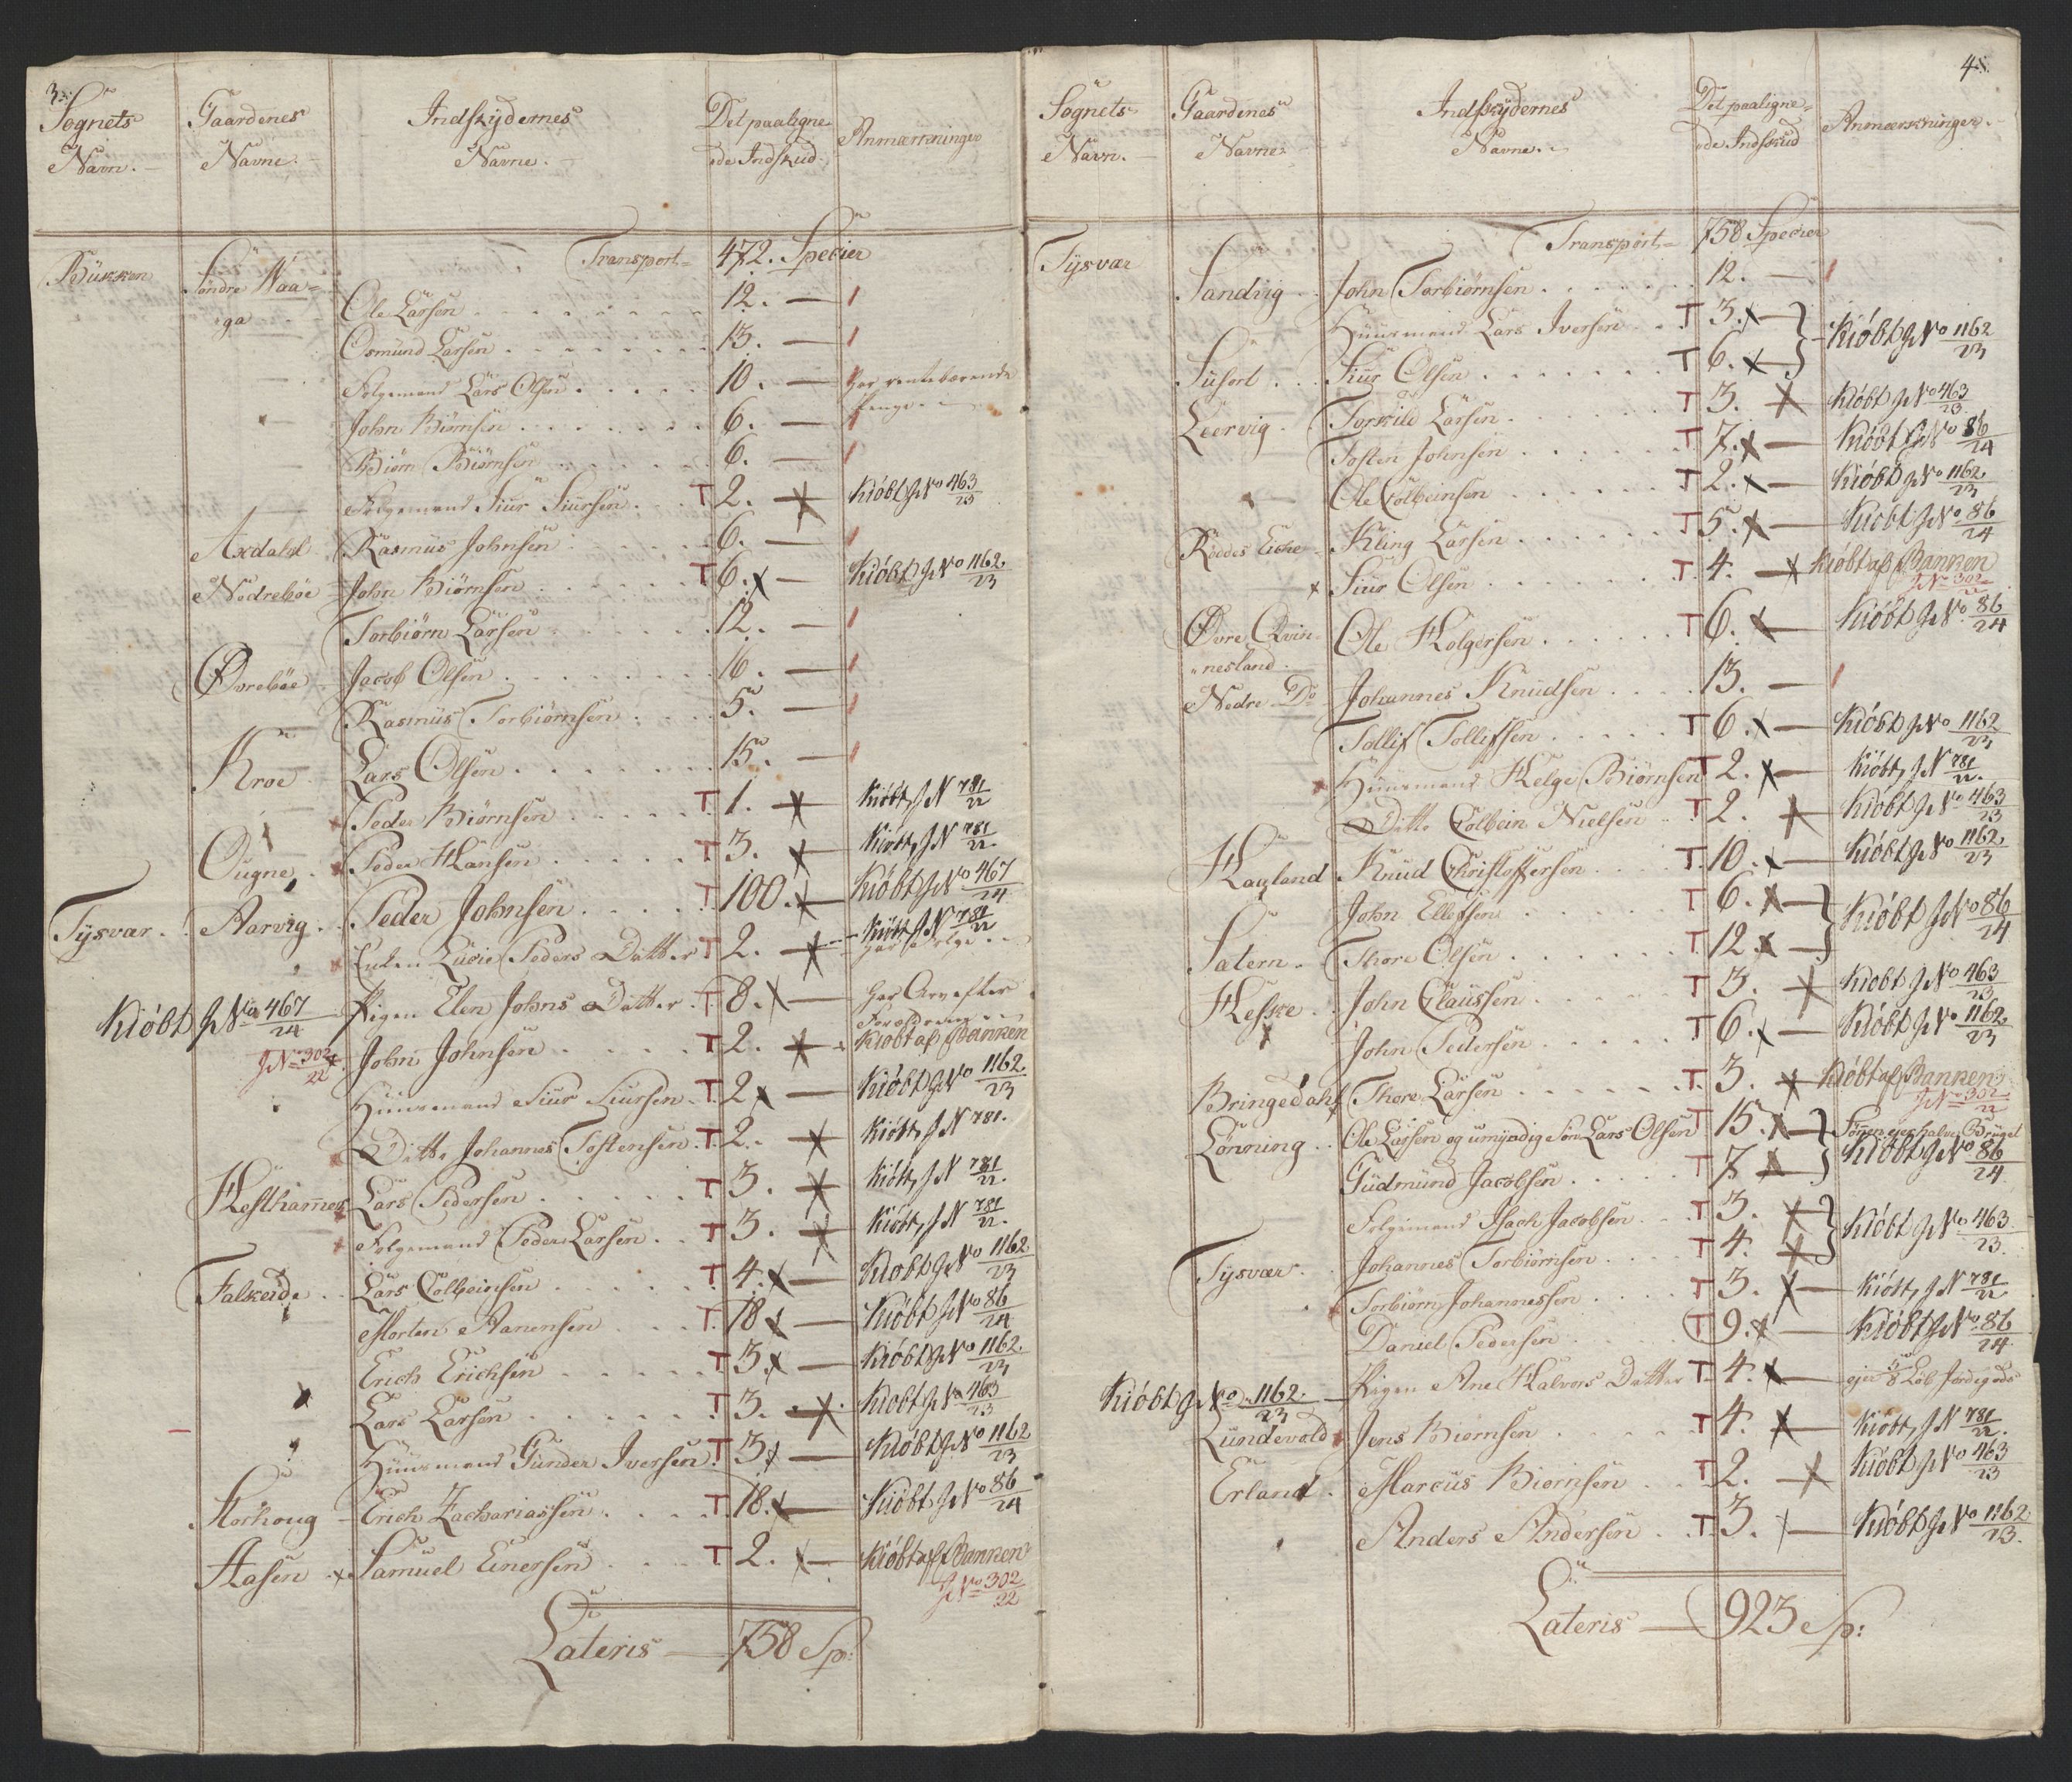 3.
Sognets Navn. Gaardenes Navne. Indskydernes Navne. Det paaligne- de Indskud. Anmærkninger
Transport 472. Specier
Büskken Søndre Waa- ga Ole Larsen 12. —
Osmund Larsen 13. —
Folgemand Lars Olsen 10. — har rentebærende Penge
John Biørnsen 6. —
Biørn Biørnsen 6. —
Folgemand Siur Siursen T 2. Kiöbt J No 463/23
Axdahl Rasmus Johnsen 6. —
Nedrebøe John Biørnsen T 6. x — Kiöbt J No 1162/23
Torbiørn Larsen 12. —
Øvrebøe Jacob Olsen 16. —
Rasmus Torbiørnsen 5. —
Kroe Lars Olsen 15. —
Peder Biørnsen T 1. Kiöbt, J N 781/22
Ougne Peder Hansen T 3. Kiöbt, J N 781/22.
Tysvær Aarvig Peder Johnsen T 100. Kiöbt J No 467/24
Enken Lucie Peders Datter T 2. Kiöbt J N 781/22
Kiöbt J No 467/24 Pigen Elen Johns Datter T 8. x — har Arv efter Forældrene
J No 302/22 John Johnsen T 2. Kiöbt af Banken
Huusmand Siur Siursen T 2 x — Kiöbt J No 1162/23
Ditto Johannes Tostensen T 2. Kiöbt, J N 781.
Hesthamer Lars Pedersen T 3. Kiöbt, J N 781/22.
Folgemand Peder Larsen T 3. Kiöbt, J N 781/22.
Falkeide Lars Colbeinsen T 4. x — Kiöbt J No 1162/23
Morten Aanensen T 18 x — Kiöbt J No 86/24
Erich Erichsen T 3 x — Kiöbt J No 1162/23
Lars Larsen T 3. Kiöbt J No 463/23
Huusmand Gunder Iversen T 3 x — Kiöbt J No 1162/23
Storhoug Erich Zachariassen T 18. x — Kiöbt J No 86/24
Aasen x Samuel Einersen T 2. x — Kiöbt af Banken
J No 302/22
Lateris — 758 Sp:
4.
Sognets Navn. Gaardenes Navne Indskydernes Navne. Det paaligne- de Indskud Anmærkninger.
Transport 758 Specier
Tysvær Sandvig John Torbiørnsen 12. —
Huusmand Lars Iversen T 3. x — } Kiöbt J No 1162/23
Siur Olsen T 6. x — }
Leervig Torkild Larsen T 3. Kiöbt J No 463/23
Tosten Johnsen T 7. x — Kiöbt J No 86/24
Ole Colbeinsen T 2. x — Kiöbt J No 1162/23
Kling Larsen T 5. x — Kiöbt J No 86/24
x Siur Olsen T 4. Kiöbt af Banken
J No 302/22
Øvre Qvin- nesland Ole Holgersen T 6. Kiöbt J No 86/24
Nedre Do Johannes Knudsen 13. —
Tollif Tollifsen T 6. x — Kiöbt J No 1162/23
Huusmand Helge Biørnsen T 2. x — Kiöbt, J N 781/22.
Ditto Colbein Nielsen T 2. Kiöbt J No 463/23
Hauland Knud Christoffersen T 10. x — Kiöbt J No 1162/23
John Ellefsen T 6. x — } Kiöbt J No 86/24
Satern Thore Olsen T 12. x — }
Heske John Claussen T 3. Kiöbt J No 463/23
John Pedersen T 6. x — Kiöbt J No 1162/23
Bringedahl Thore Larsen T 3. Kiöbt af Banken
J No 302/22
Lönning Ole Larsen og umyndig Søn Lars Olsen T 15. x — } Sønnen ejer halve Bruget
Gudmund Jacobsen T 7 x — } Kiöbt J No 86/24
Folgemand Isach Jacobsen T 3. } Kiöbt J No 463/23.
Tysvær Johannes Torbiørnsen T 4. }
Torbiørn Johannessen T 3. x — Kiöbt, J N 781/22
Daniel Pedersen T 9. x — Kiöbt J No 86/24
Kiöbt J No 1162/23 — Pigen Ane Halvors Datter T 4. x — ejer Löb Jordegods
Lundevold Jens Biørnsen T 4. Kiöbt, J N 781/22.
Erland Marcus Biørnsen T 2. Kiöbt J No 463/23
Anders Andersen T 3. x — Kiöbt J No 1162/23.
Lateris — 923 Sp: